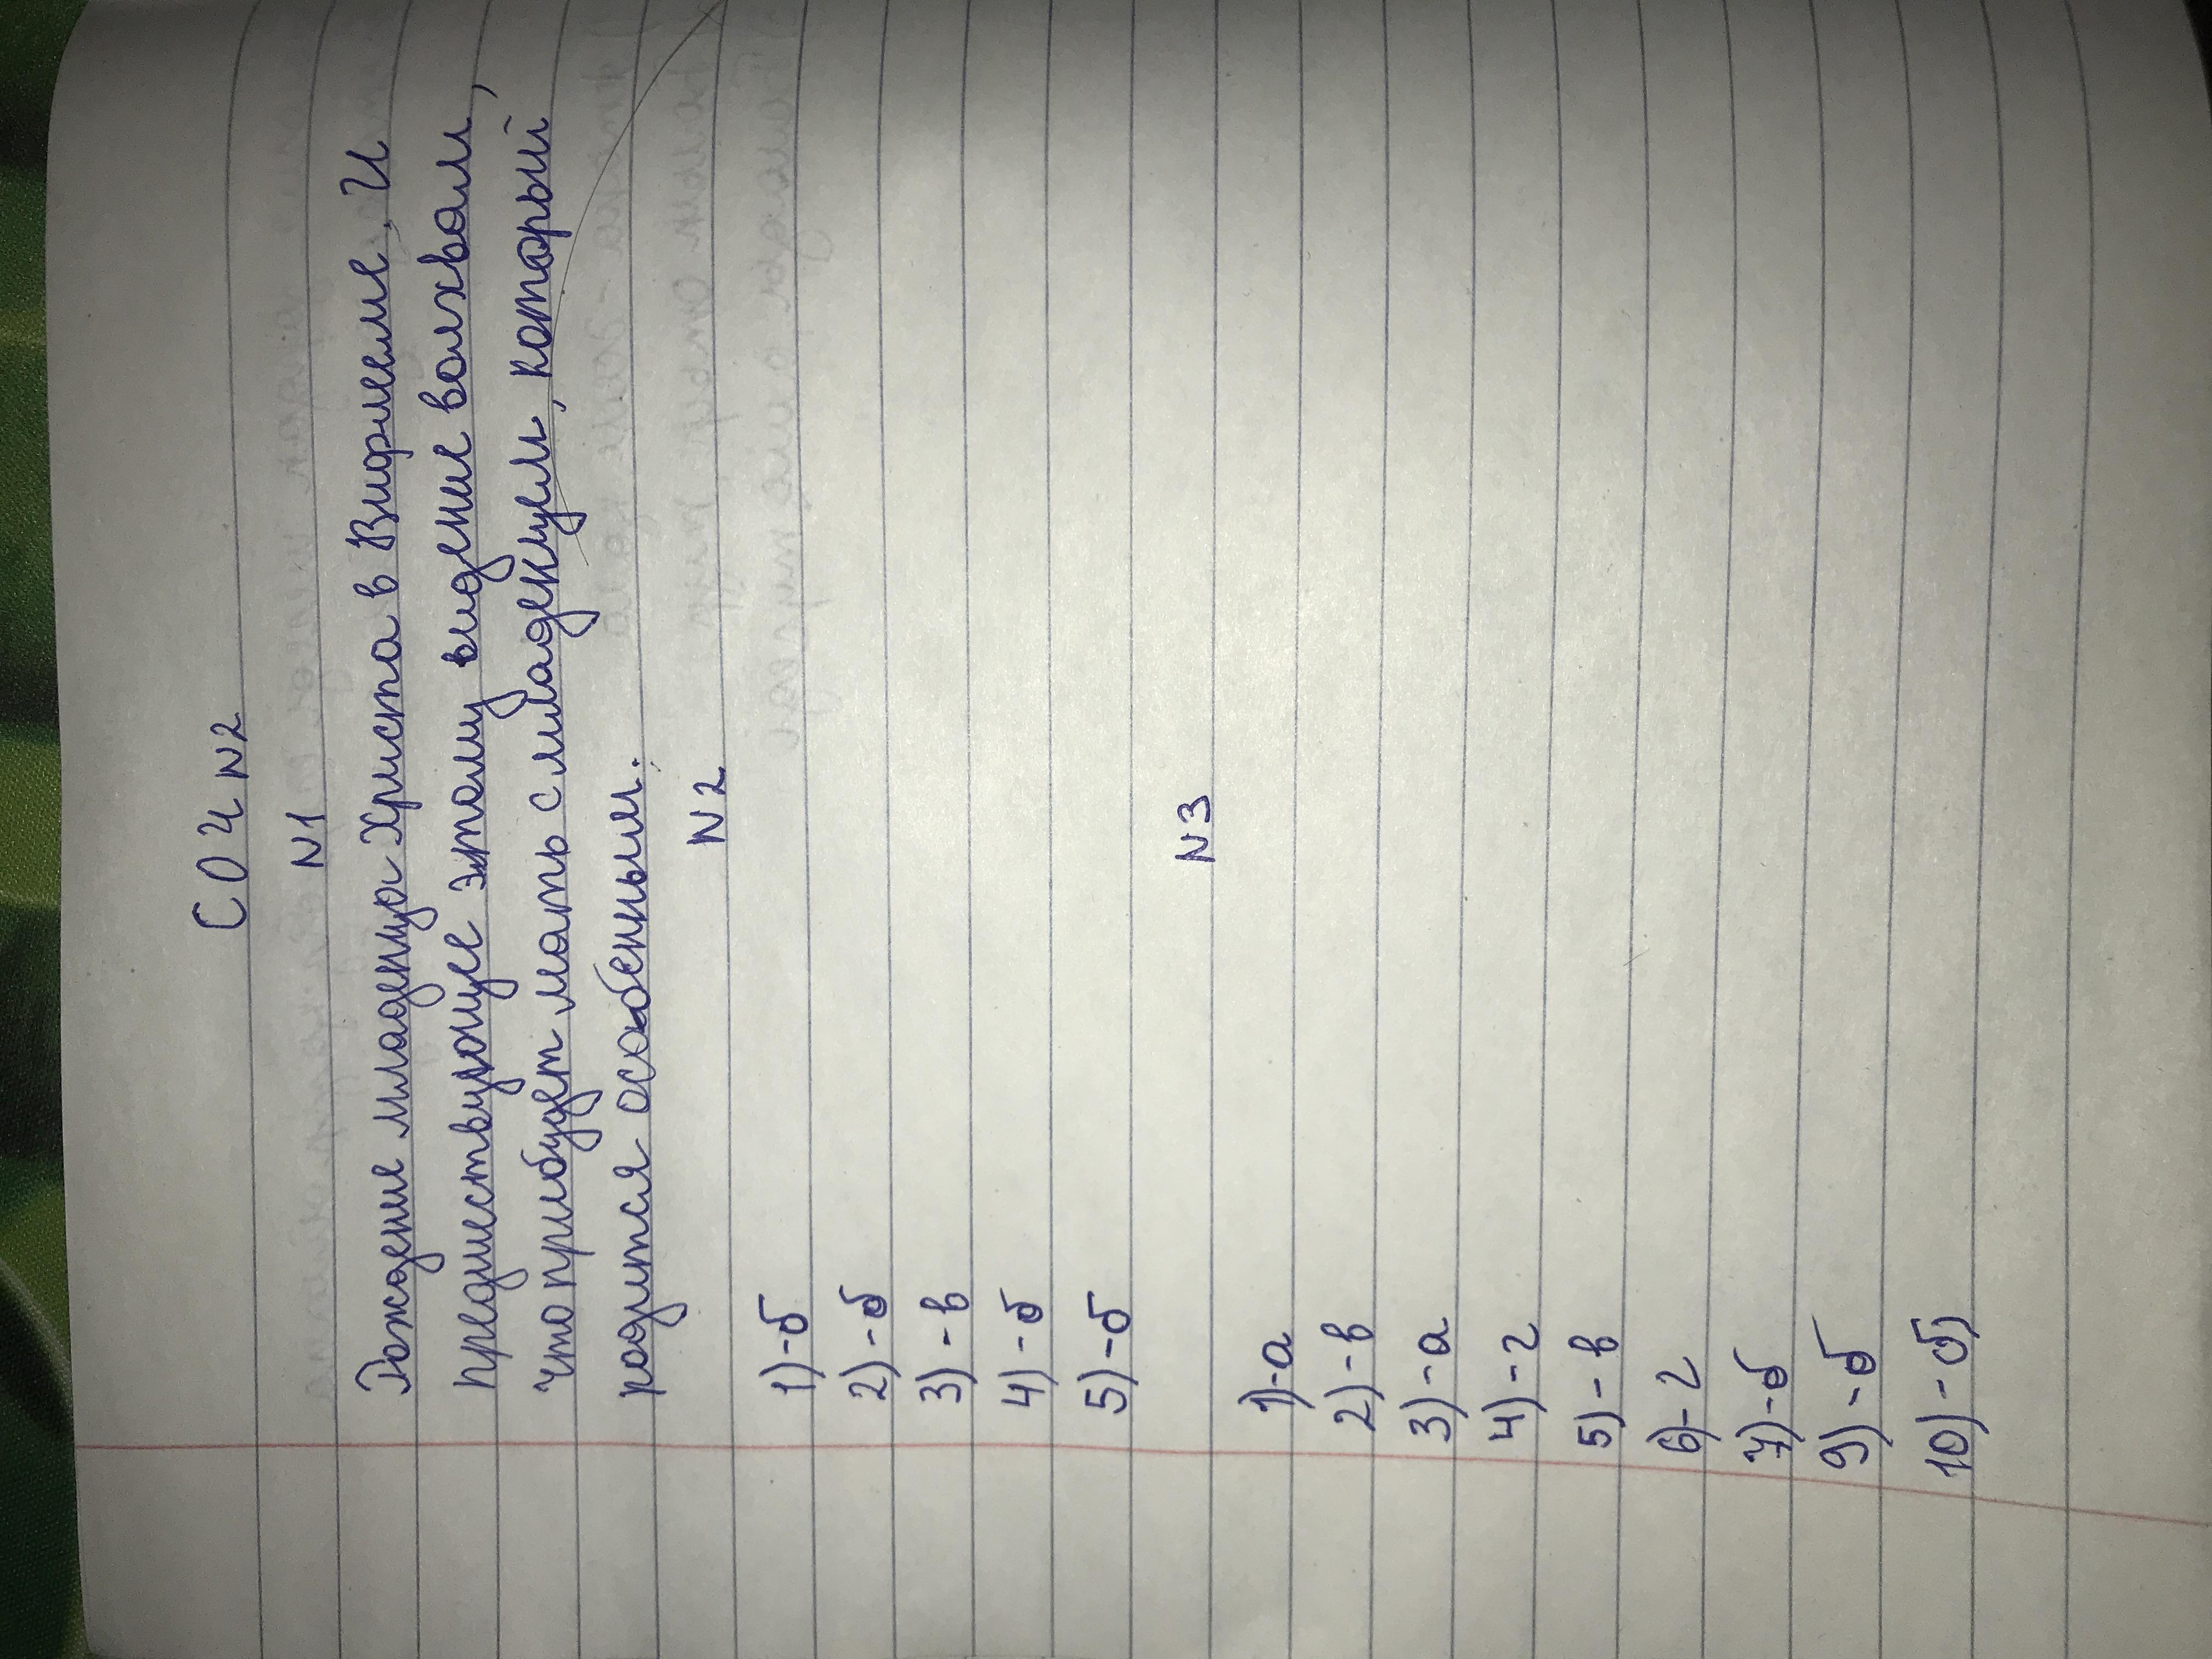 СОЧ N2
N1
Рождение младенца Христа в Вифлееме. И
предшествующее этому видение волхвам,
что прибудет мать с младенцем, который
родится особенным.
N2
1)-б
2)-б
3)-в
4)-б
5)-б
N3
1)-а
2)-в
3)-а
4)-г
5)-в
6)-г
7)-б
9)-б
10)-б)